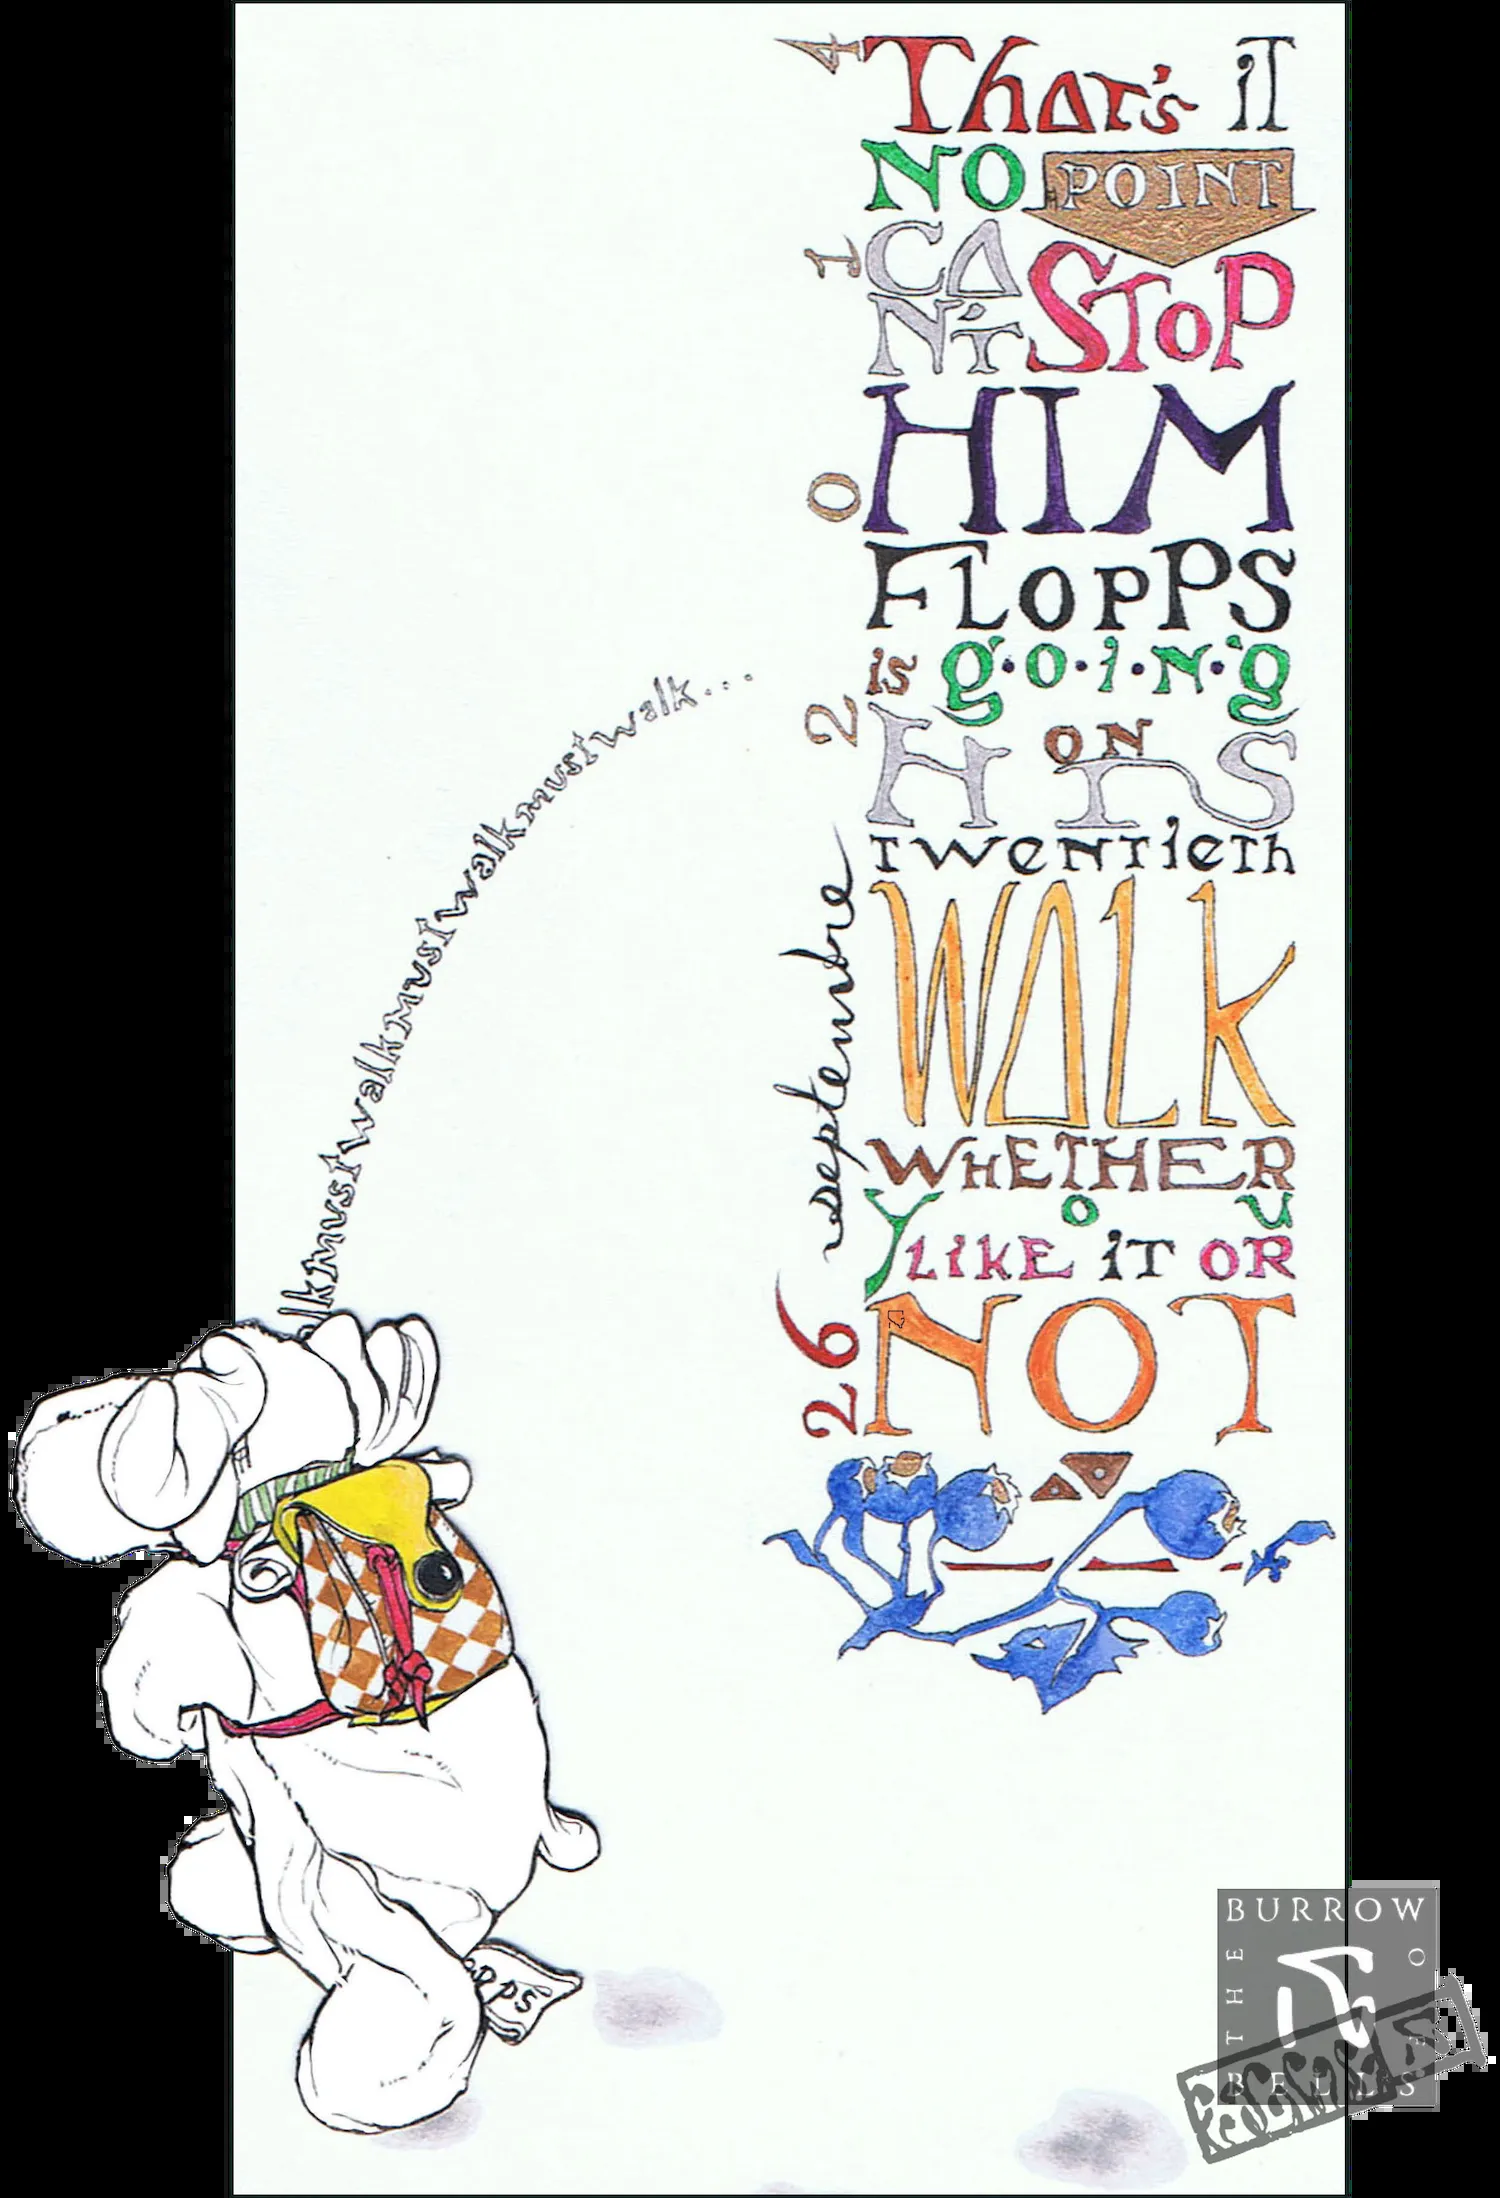 That's it
NO POINT
CA
N'T STOP
HIM
FLOPPS
is g·o·i·n·g
ON
HIS
TWENTIETH
WALK
WHETHER
YOU
LIKE IT OR
NOT
26 septembre 2014
walk mus I walk mus I walk mus I walk mus I walk...
OPPS
THE BURROW OF BELLS